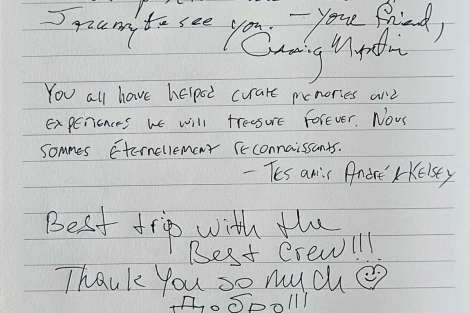 to see you. — your friend,
Craig Martin
You all have helped curate memories and
experiences we will treasure forever. Nous
sommes éternellement reconnaissants.
— Tes amis André & Kelsey
Best trip with the
Best Crew!!!
Thank You so much
Добро!!!